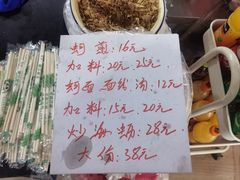 蚵煎:16元
加料:20元 25元
蚵面面线汤:12元
加料:15元、20元
炒海蛎:28元
大份:38元